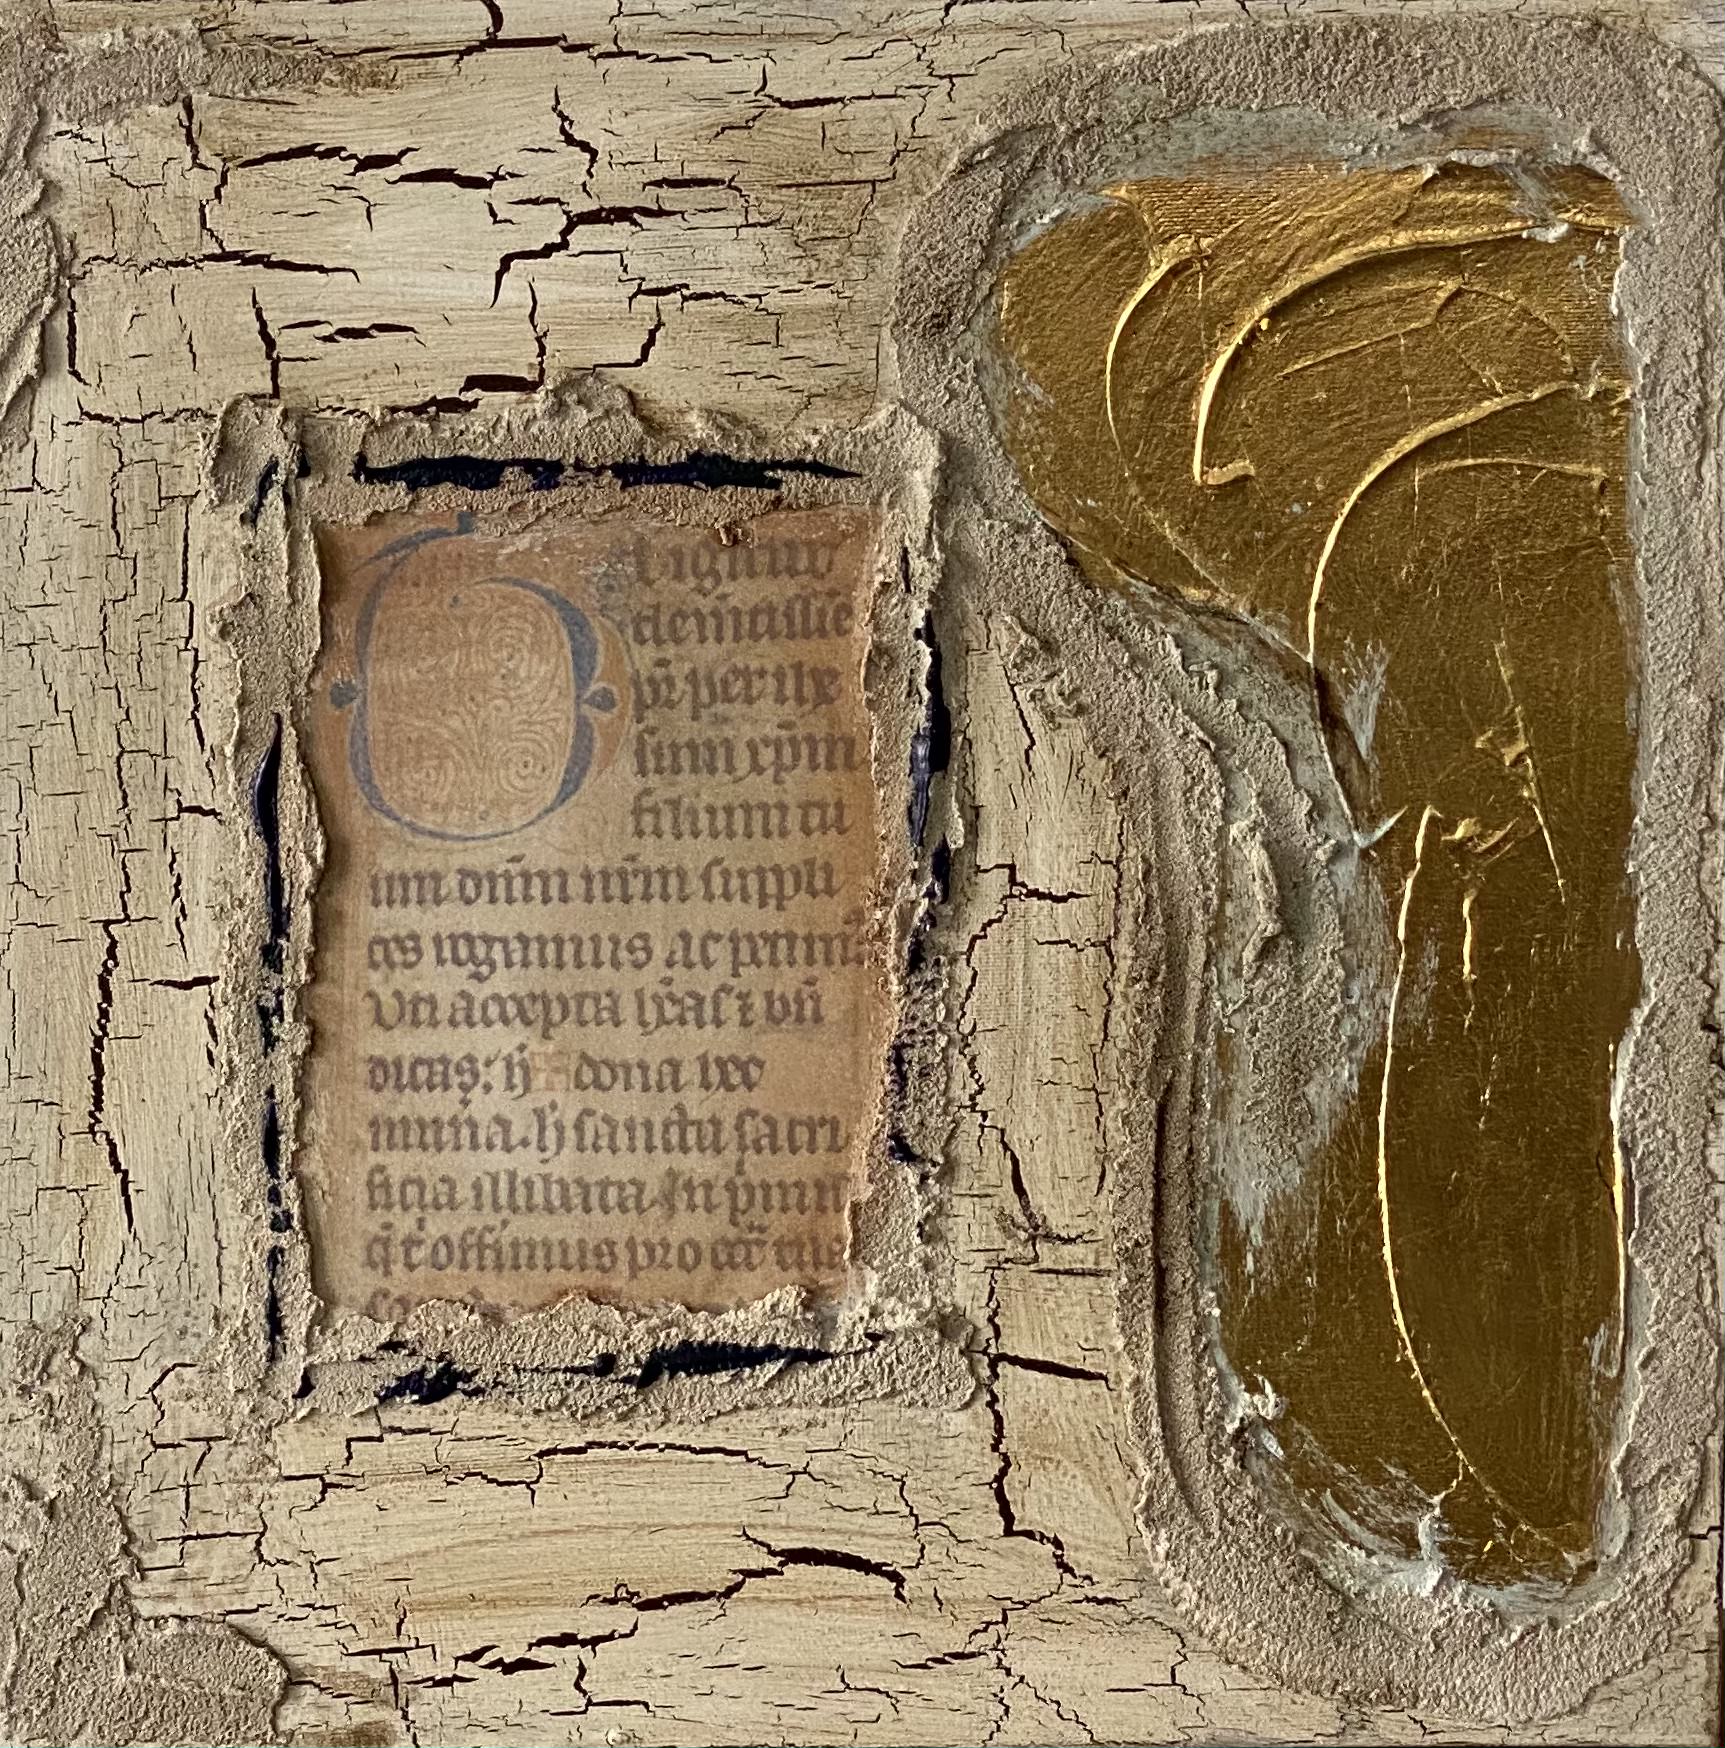 T igitur
clem̄tissie
pr̄ per ihx
sum xp̄m
filium tu
um dn̄m nr̄m suppli
ces rogamus ac petim
Uti accepta hēas ⁊ bn̄
dicas; h̄ dona hec
mun̄a. h̄ sancta sacri
ficia illibata In p̄mis
q̄ t̄ offimus pro ecc̄ tua